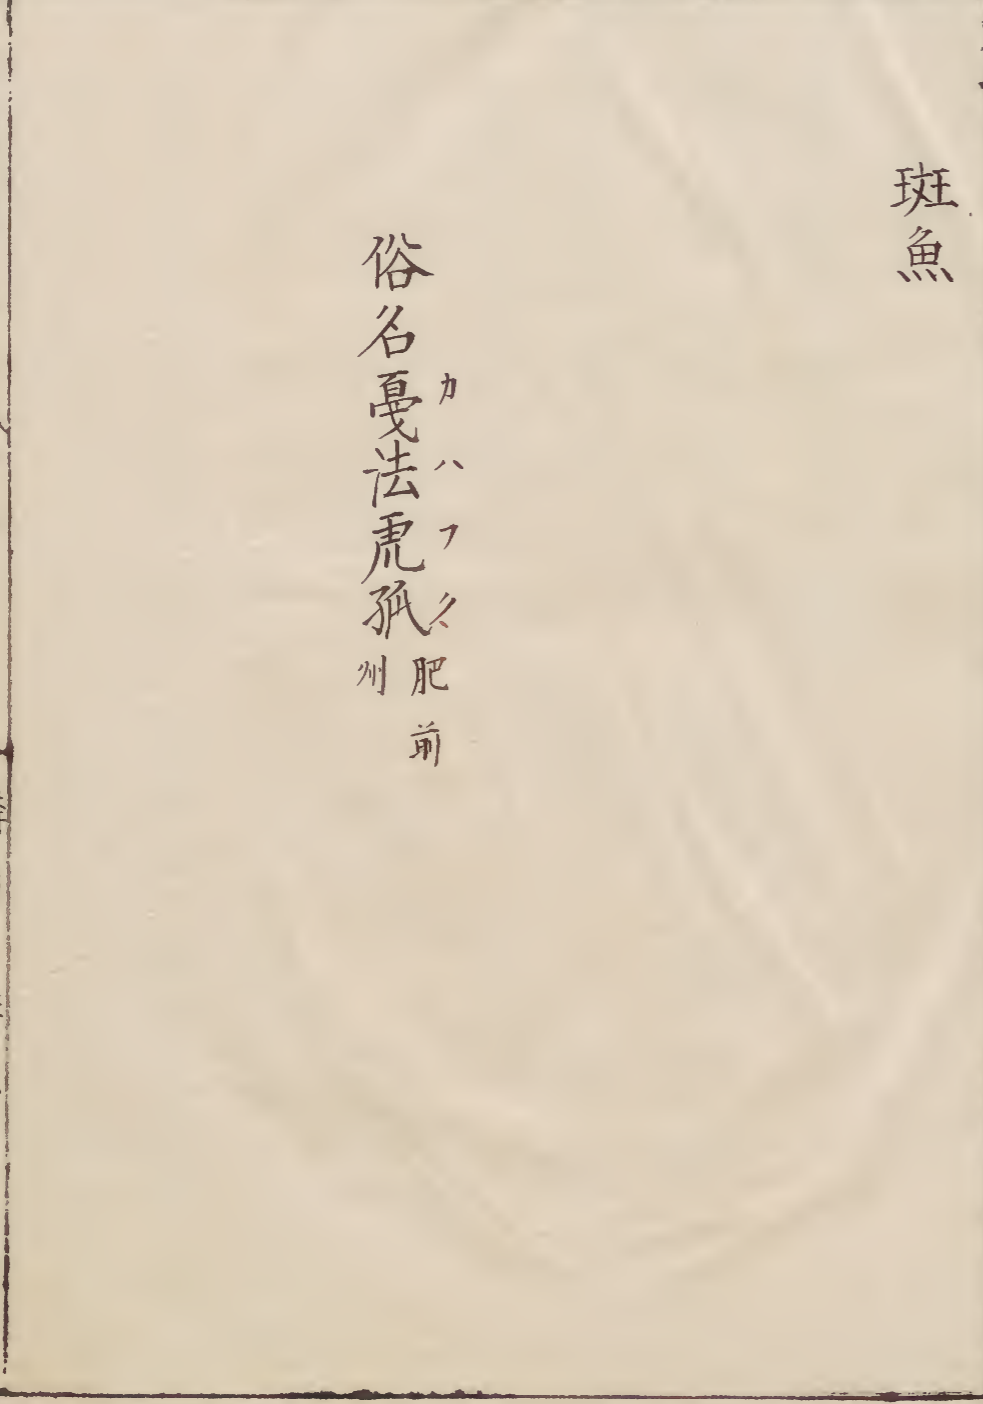 斑魚
俗名戛法虎孤
カハフク
肥前
州